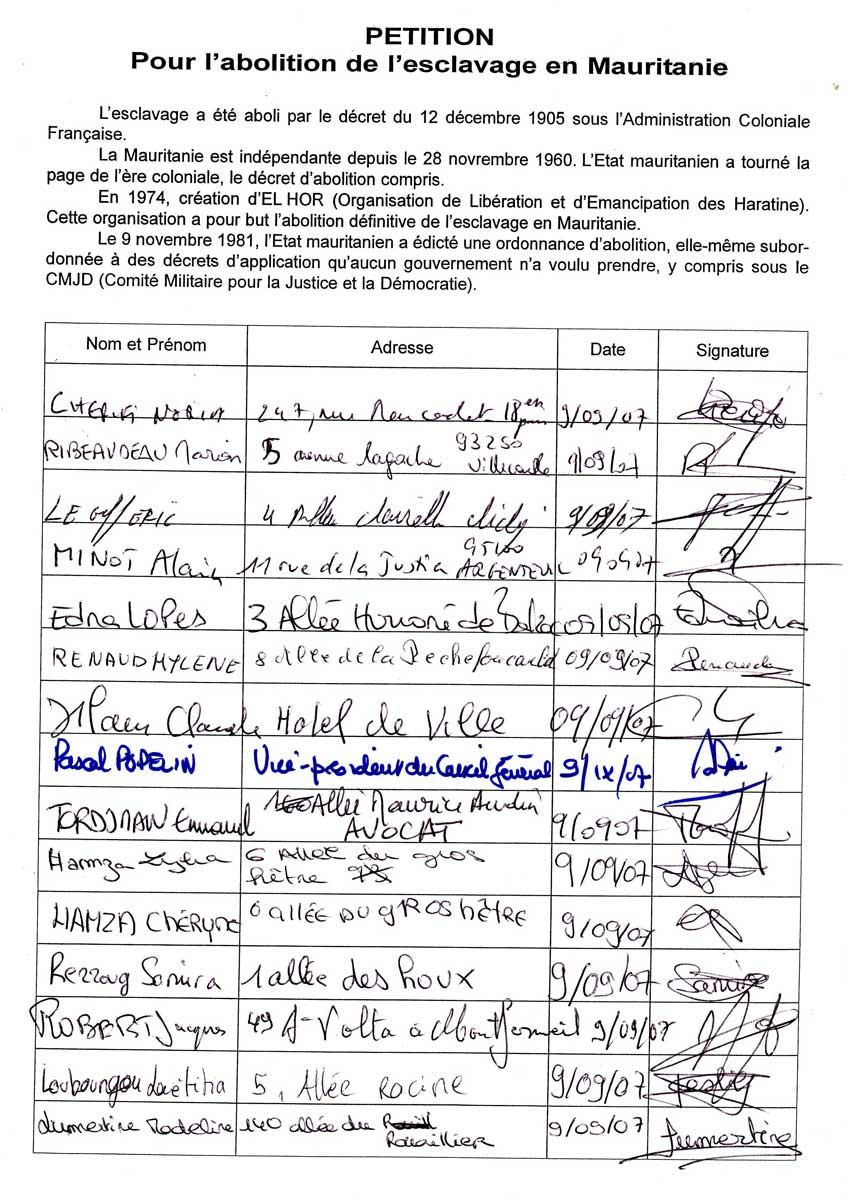 PETITION
Pour l'abolition de l'esclavage en Mauritanie
L'esclavage a été aboli par le décret du 12 décembre 1905 sous l'Administration Coloniale
Française.
La Mauritanie est indépendante depuis le 28 novrembre 1960. L'Etat mauritanien a tourné la
page de l'ère coloniale, le décret d'abolition compris.
En 1974, création d'EL HOR (Organisation de Libération et d'Emancipation des Haratine).
Cette organisation a pour but l'abolition définitive de l'esclavage en Mauritanie.
Le 9 novembre 1981, l'Etat mauritanien a édicté une ordonnance d'abolition, elle-même subor-
donnée à des décrets d'application qu'aucun gouvernement n'a voulu prendre, y compris sous le
CMJD (Comité Militaire pour la Justice et la Démocratie).
Nom et Prénom Adresse Date Signature
247, rue 18en 9/09/07
RIBEAUDEAU Marion 5 avenue 93250
LE ERIC 4 9/09/07
MINOT Alain 11 rue de la Justice 95100 ARGENTEUIL 090907
Edna LOPES 3 Allée Honoré de Balzac 09/09/07
RENAUD MYLENE 8 Allée de la Rochefoucauld 09/09/07 Renaud
Claude Hotel de Ville 09/09/07
Pascal POPELIN Vice-président du Conseil Général 9/IX/07
TORDJMAN Emmanuel Allée Maurice Audin
AVOCAT 9/0907
Hamza 6 Allée du gros
hêtre 9/09/07
HAMZA Chéryne 6 ALLÉE DU gROS hÊTRE 9/09/07
Rezzoug Samira 1 allée des houx 9/09/07 Samira
ROBERT Jacques 49 A- Volta à Montfermeil 9/09/07
Louboungou Laëtitia 5, Allée racine 9/09/07
dumertine Madeline 140 allée du
9/09/07 Dumertine